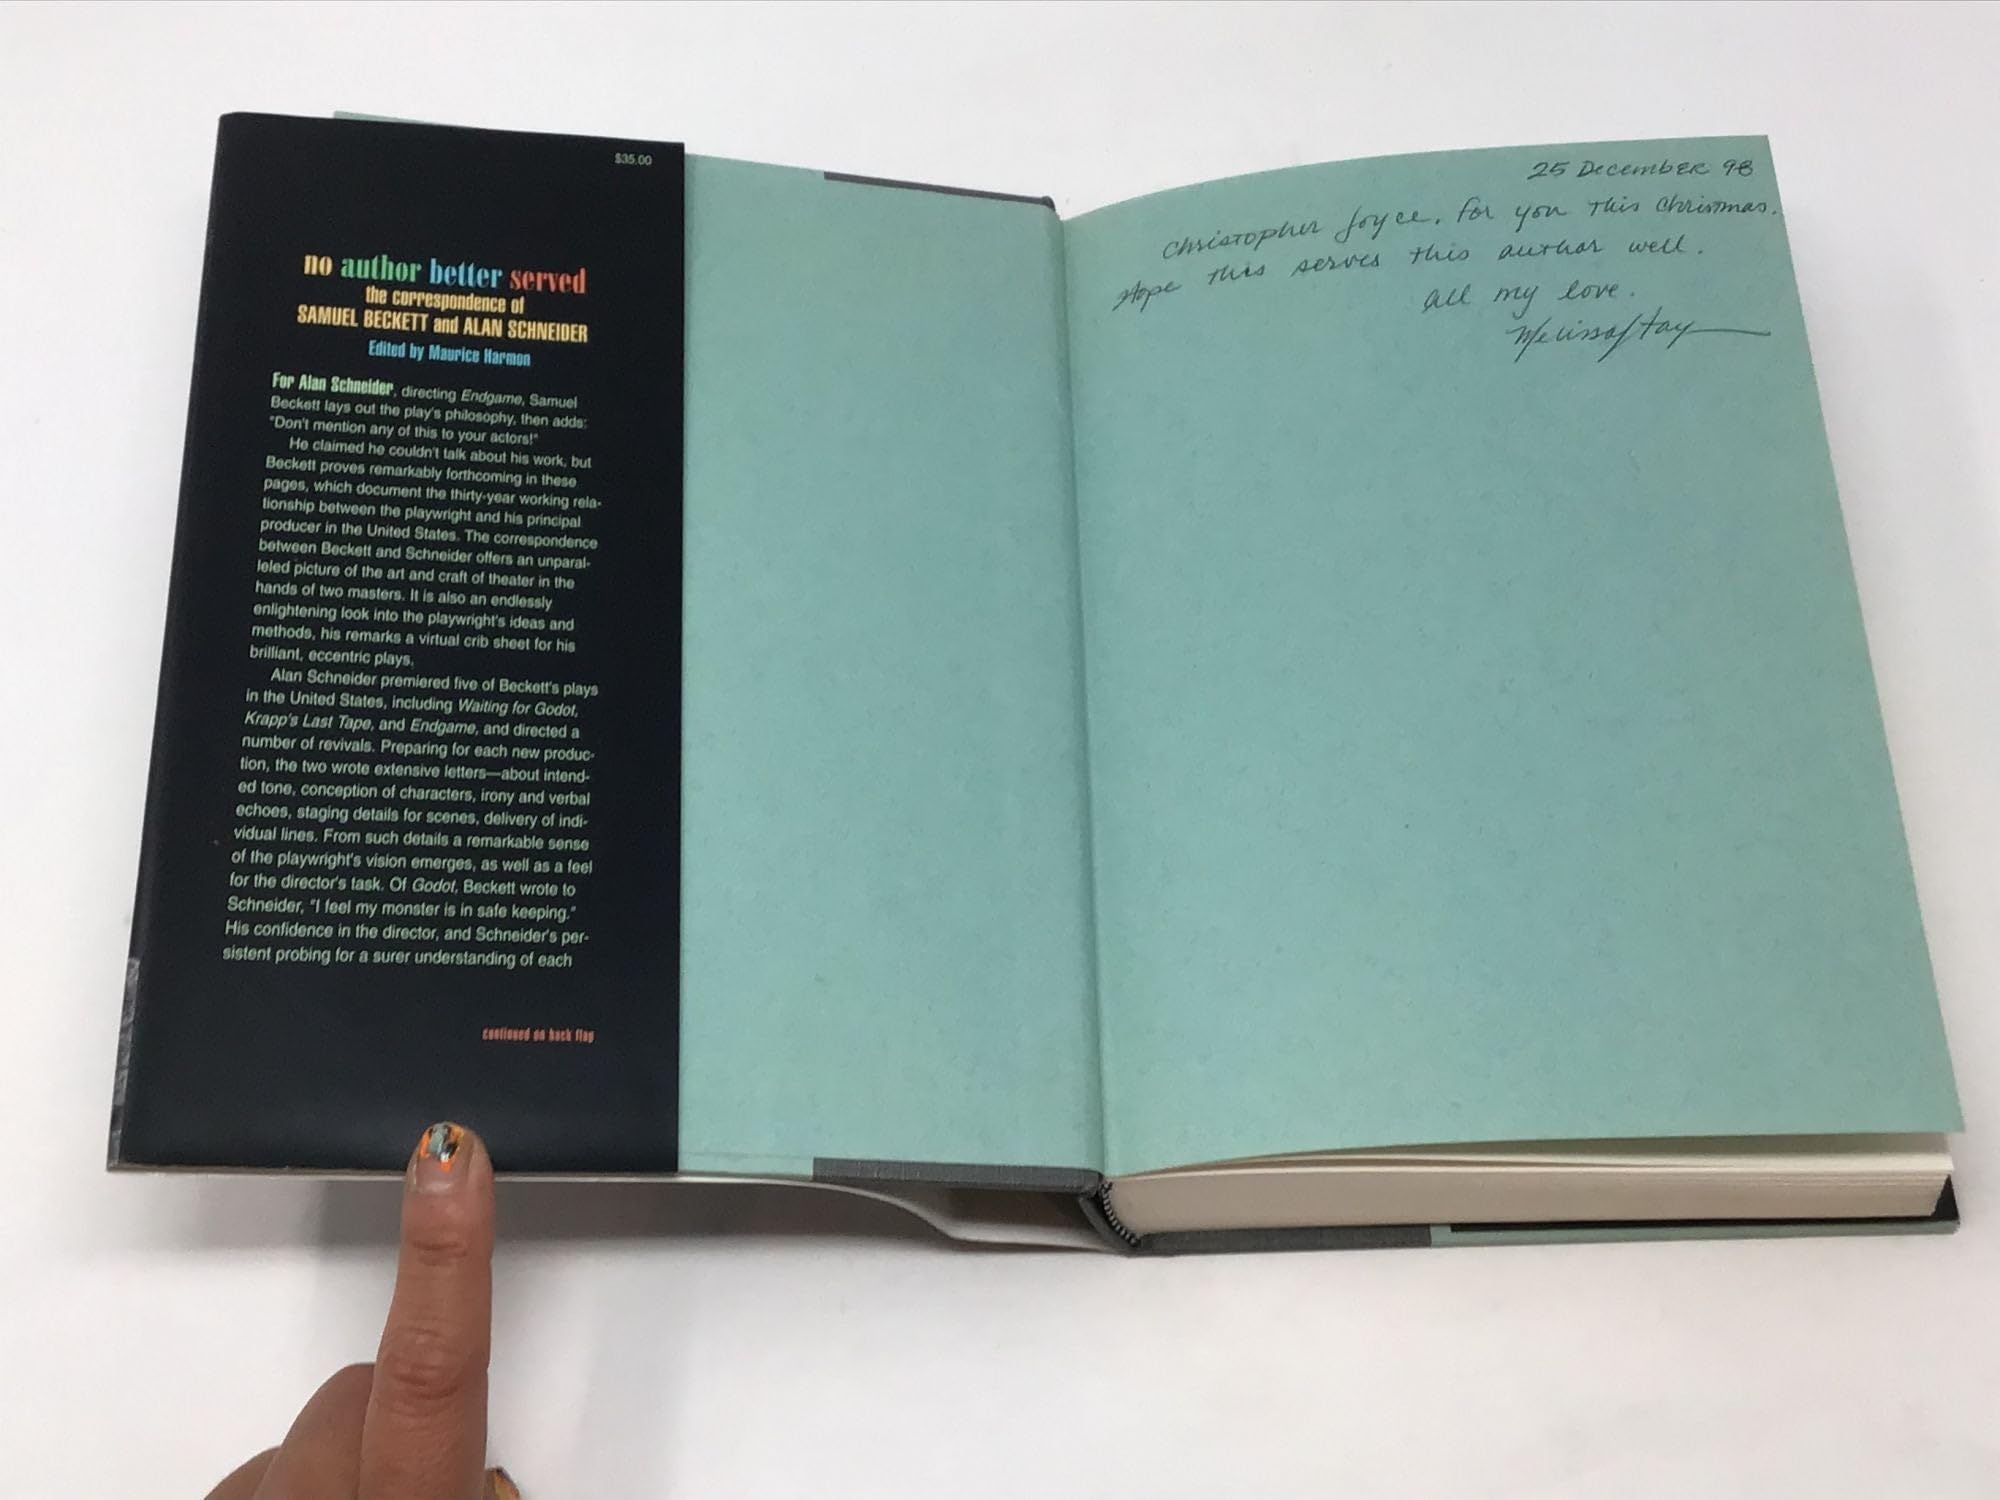 $35.00
no author better served
the correspondence of
SAMUEL BECKETT and ALAN SCHNEIDER
Edited by Maurice Harmon
For Alan Schneider, directing Endgame, Samuel
Beckett lays out the play's philosophy, then adds:
"Don't mention any of this to your actors!"
He claimed he couldn't talk about his work, but
Beckett proves remarkably forthcoming in these
pages, which document the thirty-year working rela-
tionship between the playwright and his principal
producer in the United States. The correspondence
between Beckett and Schneider offers an unparal-
leled picture of the art and craft of theater in the
hands of two masters. It is also an endlessly
enlightening look into the playwright's ideas and
methods, his remarks a virtual crib sheet for his
brilliant, eccentric plays.
Alan Schneider premiered five of Beckett's plays
in the United States, including Waiting for Godot,
Krapp's Last Tape, and Endgame, and directed a
number of revivals. Preparing for each new produc-
tion, the two wrote extensive letters—about intend-
ed tone, conception of characters, irony and verbal
echoes, staging details for scenes, delivery of indi-
vidual lines. From such details a remarkable sense
of the playwright's vision emerges, as well as a feel
for the director's task. Of Godot, Beckett wrote to
Schneider, "I feel my monster is in safe keeping."
His confidence in the director, and Schneider's per-
sistent probing for a surer understanding of each
continued on back flap
25 December 98
Christopher Joyce, for you this Christmas.
Hope this serves this author well.
All my love.
Melissa